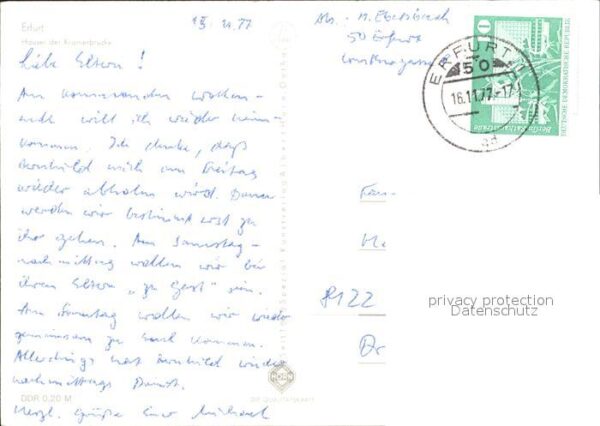 Erfurt
Häuser der Krämerbrücke
15. 11. 77
Abs. : M. Ebersbach
50 Erfurt
Liebe Eltern !
Am kommenden Wochen-
ende will ich wieder heim-
kommen. Ich denke, daß
Bernhild mich am Freitag
wieder abholen wird. Dann
werden wir bestimmt erst zu
ihr gehen. Am Samstag-
nachmittag wollen wir bei
ihren Eltern "zu Gast" sein.
Am Sonntag wollen wir wieder
gemeinsam zu Euch kommen.
Allerdings hat Bernhild wieder
nachmittags Dienst.
Herzl. Grüße Euer Michael
DDR 0,20 M
ERFURT 1
50
16.11.77-17
ad
10
DEUTSCHE DEMOKRATISCHE REPUBLIK
Berlin, Rathausstraße
8122
privacy protection
Datenschutz